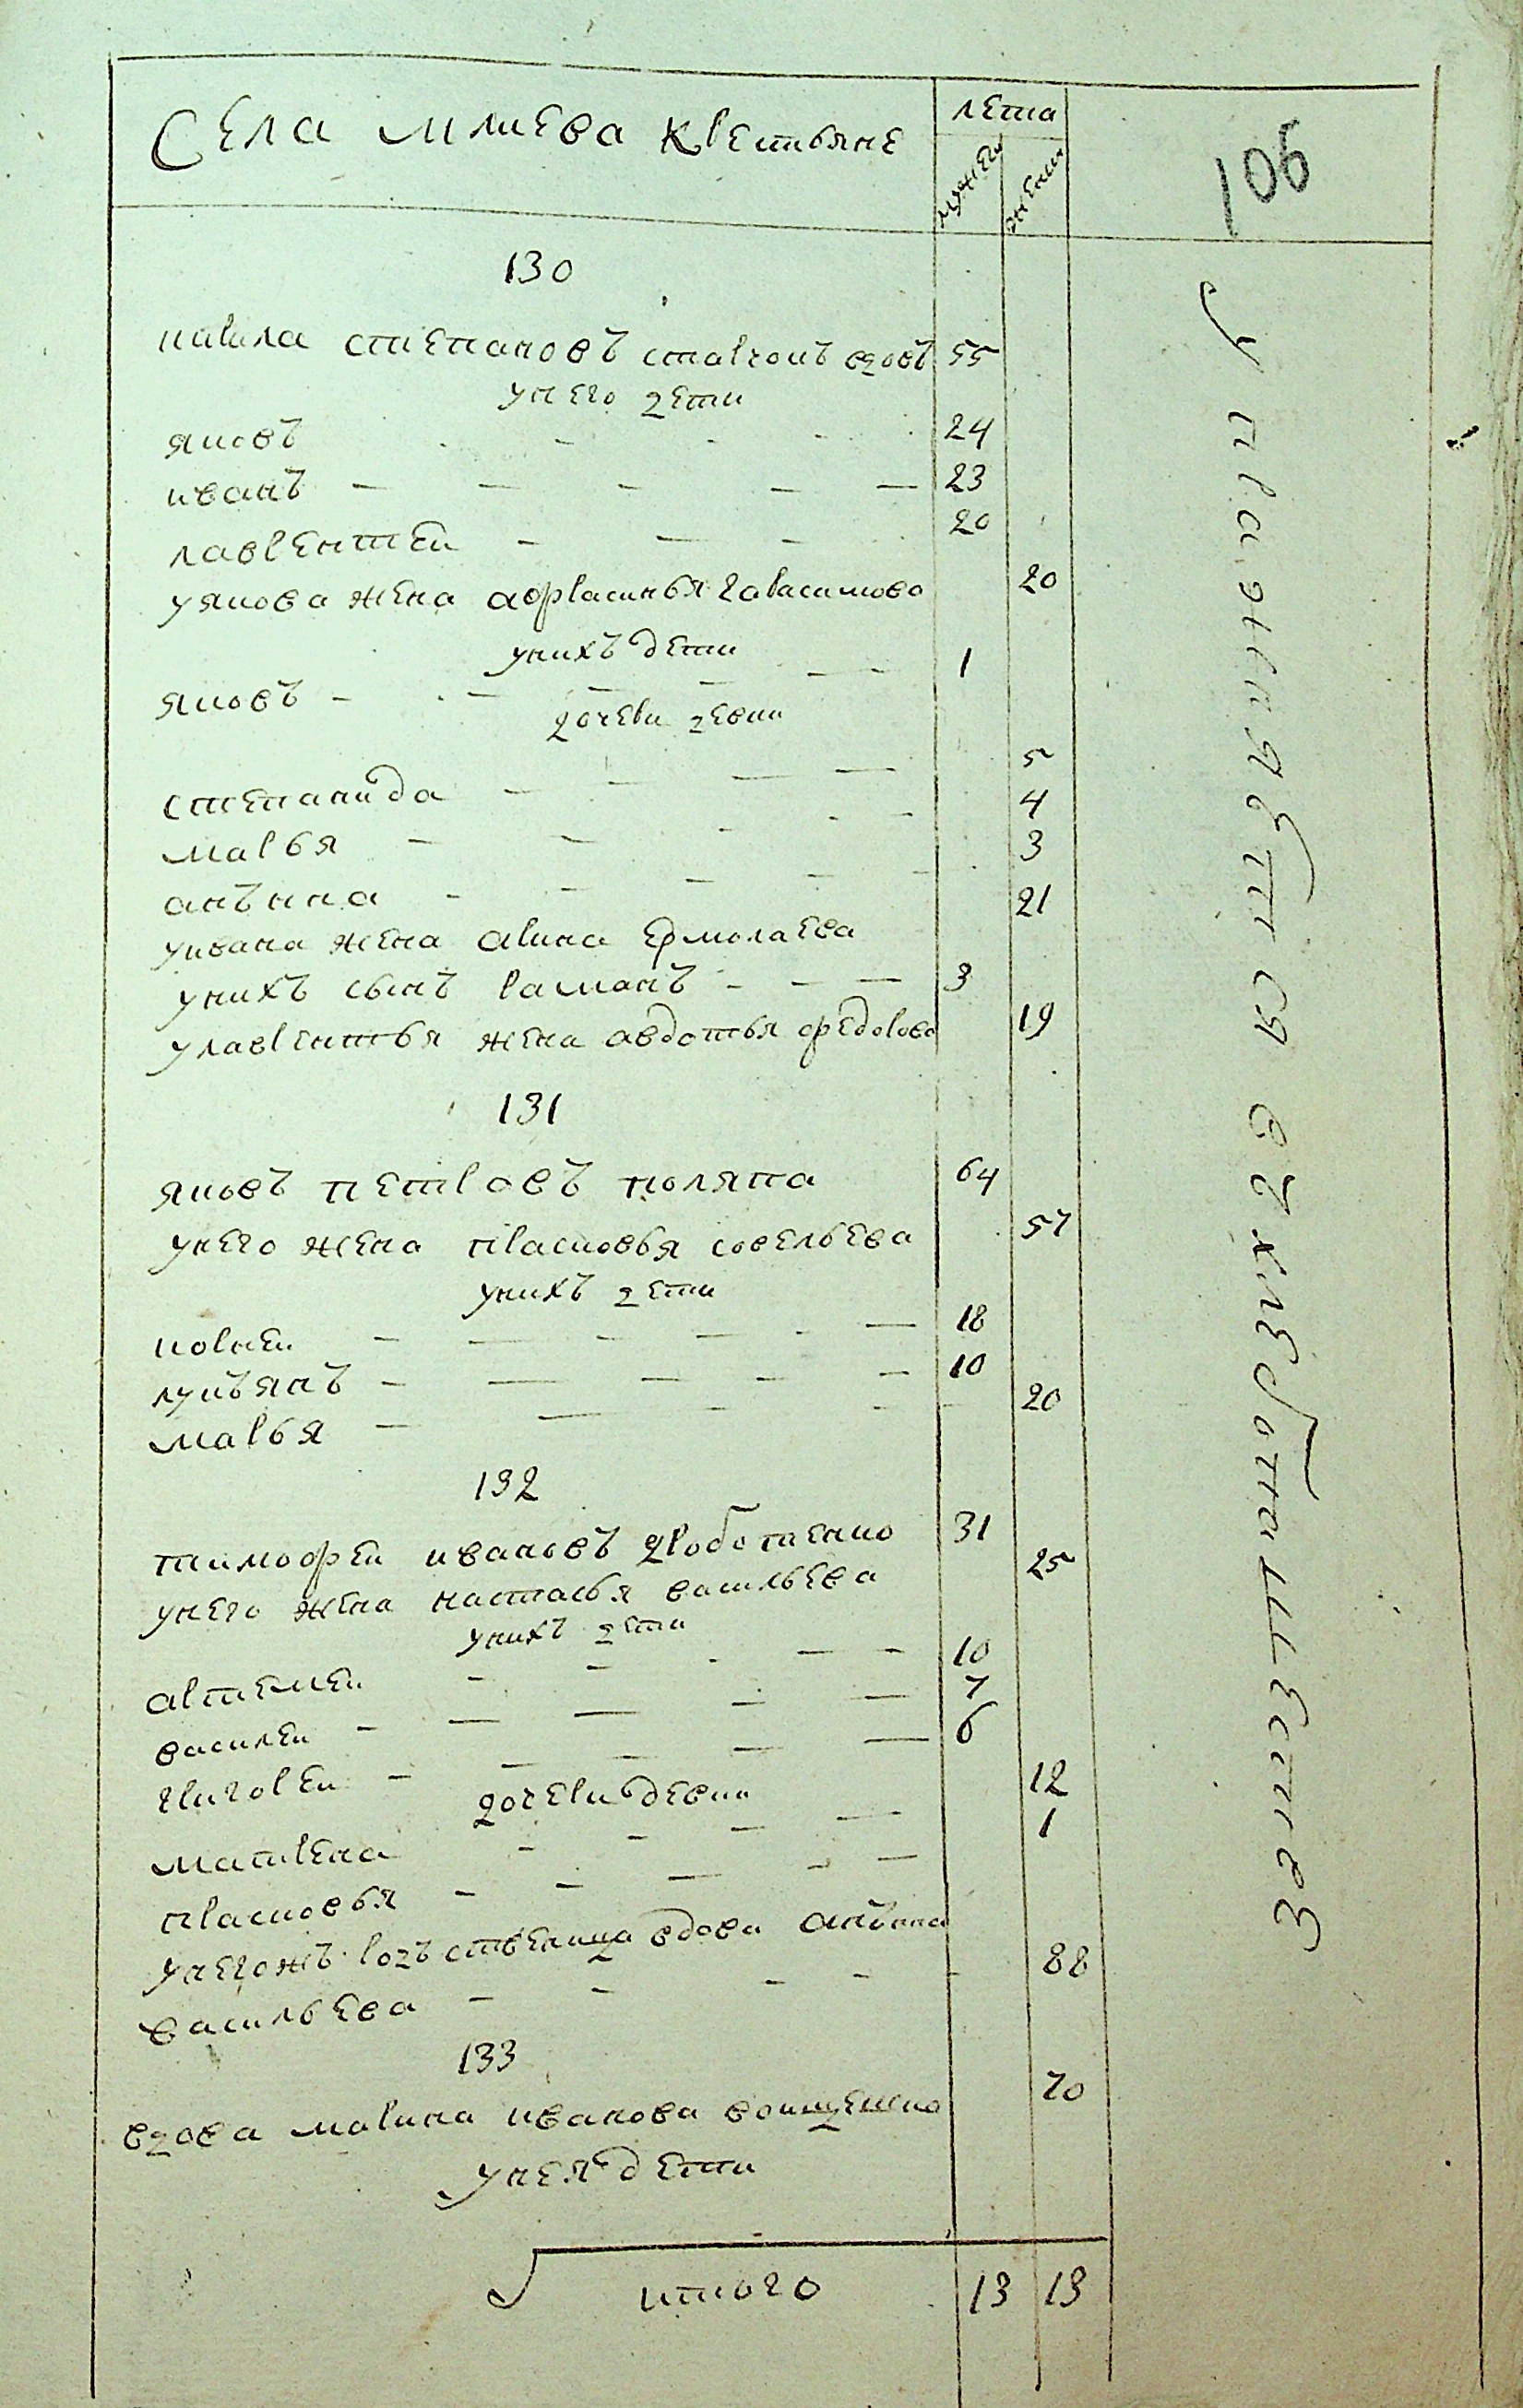 Села Млиева крестьяне
лета
мужеск
женск
106
130
кирила степановъ старчокъ вдовъ 55
у него дети
яковъ 24
иванъ 23
лаврентей 20
у якова жена афрасинья гарасимова 20
у нихъ дети
яковъ 1
дочери девки
степанида 5
марья 4
анънна 3
у ивана жена арина ермолаева 21
у нихъ сынъ раманъ 3
у лаврентья жена авдотья федорова 19
131
яковъ петровъ коляпа 64
у него жена прасковья савельева 57
у нихъ дети
корней 18
лукъянъ 10
марья 20
132
тимофей ивановъ дроботенко 31
у него жена настасья васильева 25
у нихъ дети
артемей 10
василей 7
григорей 6
дочери девки
матрена 12
прасковья 1
у негожъ родственица вдова анънна
васильева 88
133
вдова марина иванова 70
у нея дети
итого 13 13